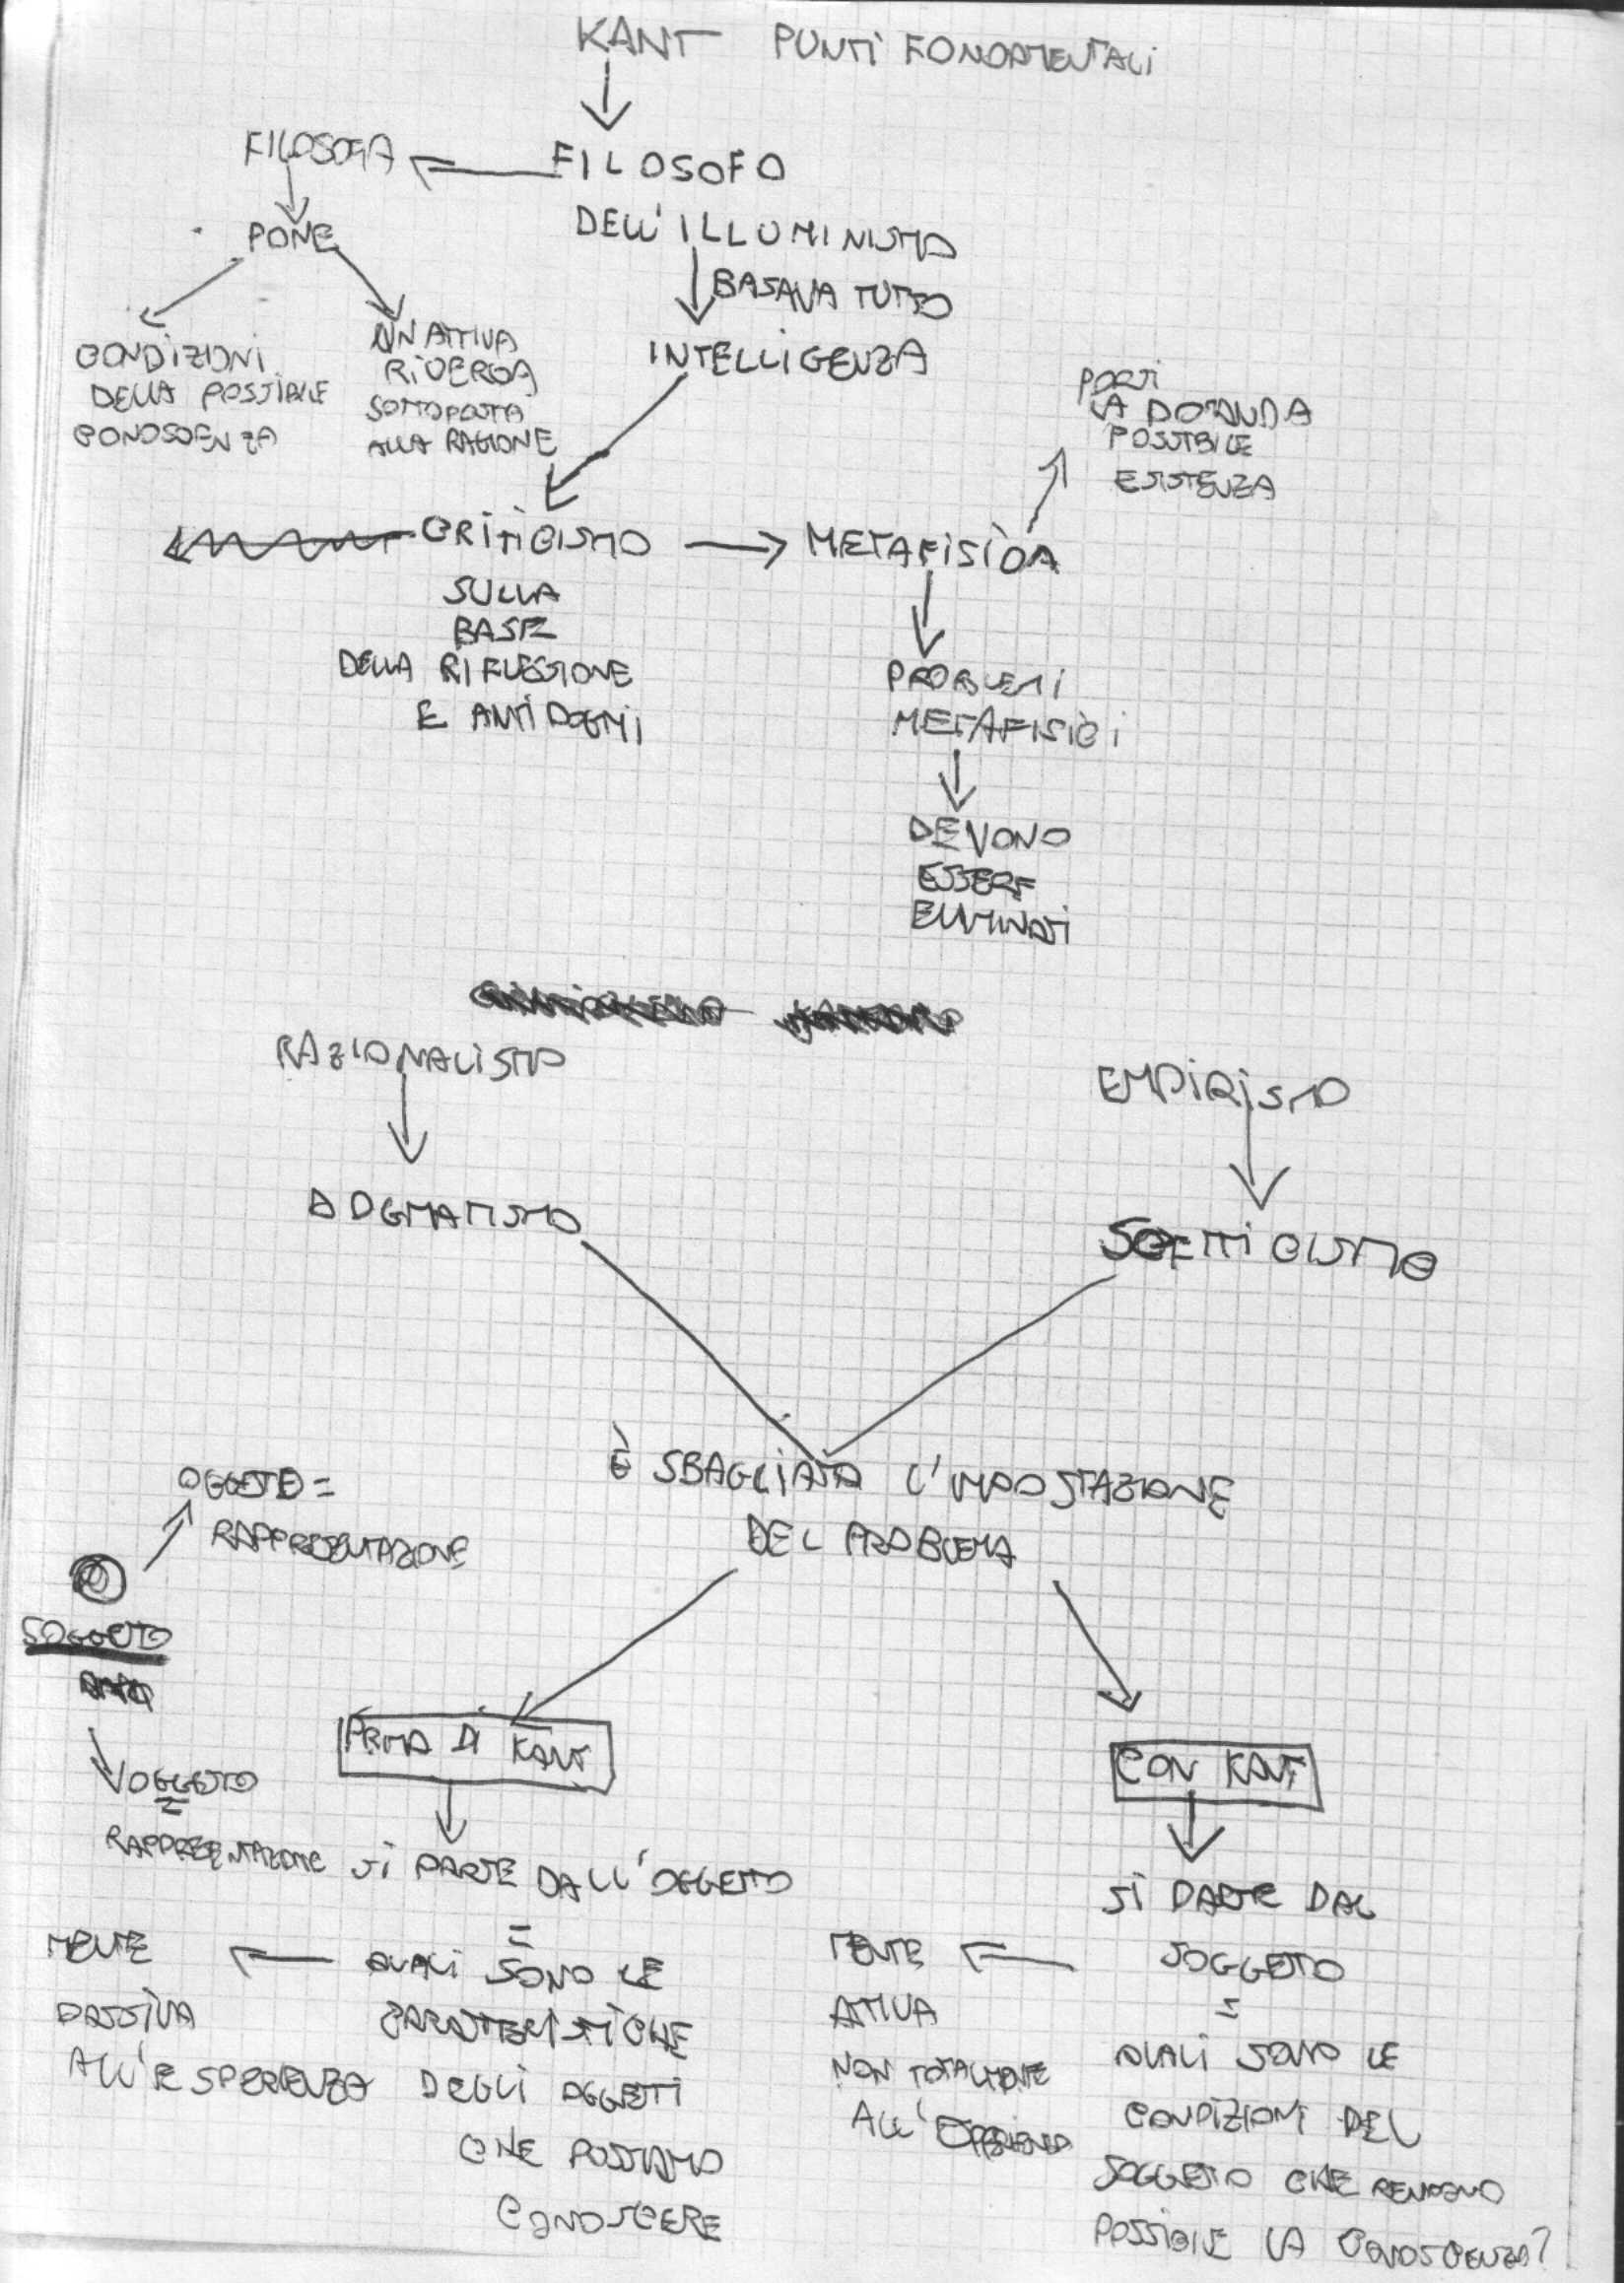 KANT PUNTI FONDAMENTALI
FILOSOFIA
FILOSOFO
DELL'ILLUMINISMO
PONE
BASAVA TUTTO
INTELLIGENZA
CONDIZIONI
DELLA POSSIBILE
CONOSCENZA
UN'ATTIVA
RICERCA
SOTTOPOSTA
ALLA RAGIONE
PORSI
LA DOMANDA
POSSIBILE
ESISTENZA
CRITICISMO
METAFISICA
SULLA
BASE
DELLA RIFLESSIONE
E ANTI DOGMI
PROBLEMI
METAFISICI
DEVONO
ESSERE
ELIMINATI
RAZIONALISMO
EMPIRISMO
DOGMATISMO
SCETTICISMO
È SBAGLIATA L'IMPOSTAZIONE
DEL PROBLEMA
OGGETTO =
RAPPRESENTAZIONE
SOGGETTO
OGGETTO
=
RAPPRESENTAZIONE
PRIMA DI KANT
CON KANT
SI PARTE DALL'OGGETTO
=
QUALI SONO LE
CARATTERISTICHE
DEGLI OGGETTI
CHE POSSIAMO
CONOSCERE
MENTE
PASSIVA
ALL'ESPERIENZA
SI PARTE DAL
SOGGETTO
=
QUALI SONO LE
CONDIZIONI DEL
SOGGETTO CHE RENDONO
POSSIBILE LA CONOSCENZA?
MENTE
ATTIVA
NON TOTALMENTE
ALL'ESPERIENZA